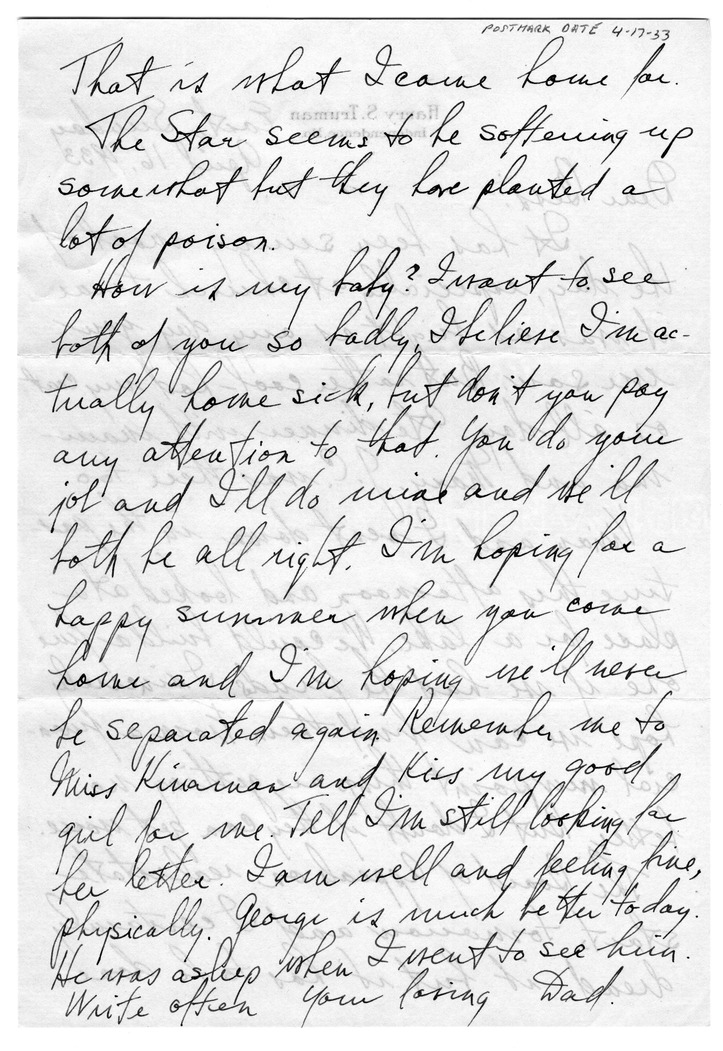 POSTMARK DATE 4-17-33
That is what I come home for.
The Star seems to be softening up
somewhat but they have planted a
lot of poison.
How is my baby? I want to see
both of you so badly, I believe I'm ac-
tually home sick, but don't you pay
any attention to that. You do your
job and I'll do mine and we'll
both be all right. I'm hoping for a
happy summer when you come
home and I'm hoping we'll never
be separated again. Remember me to
Miss Kinaman and Kiss my good
girl for me. Tell I'm still looking for
her letter. I am well and feeling fine,
physically. George is much better today.
He was asleep when I went to see him.
Write often Your loving Dad.